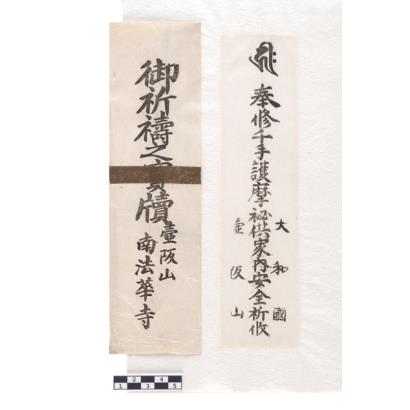 奉修千手護摩祕供家内安全祈攸
大和國
壷阪山
御祈禱之寳牘
壷阪山
南法華寺
1 2 3 4 5